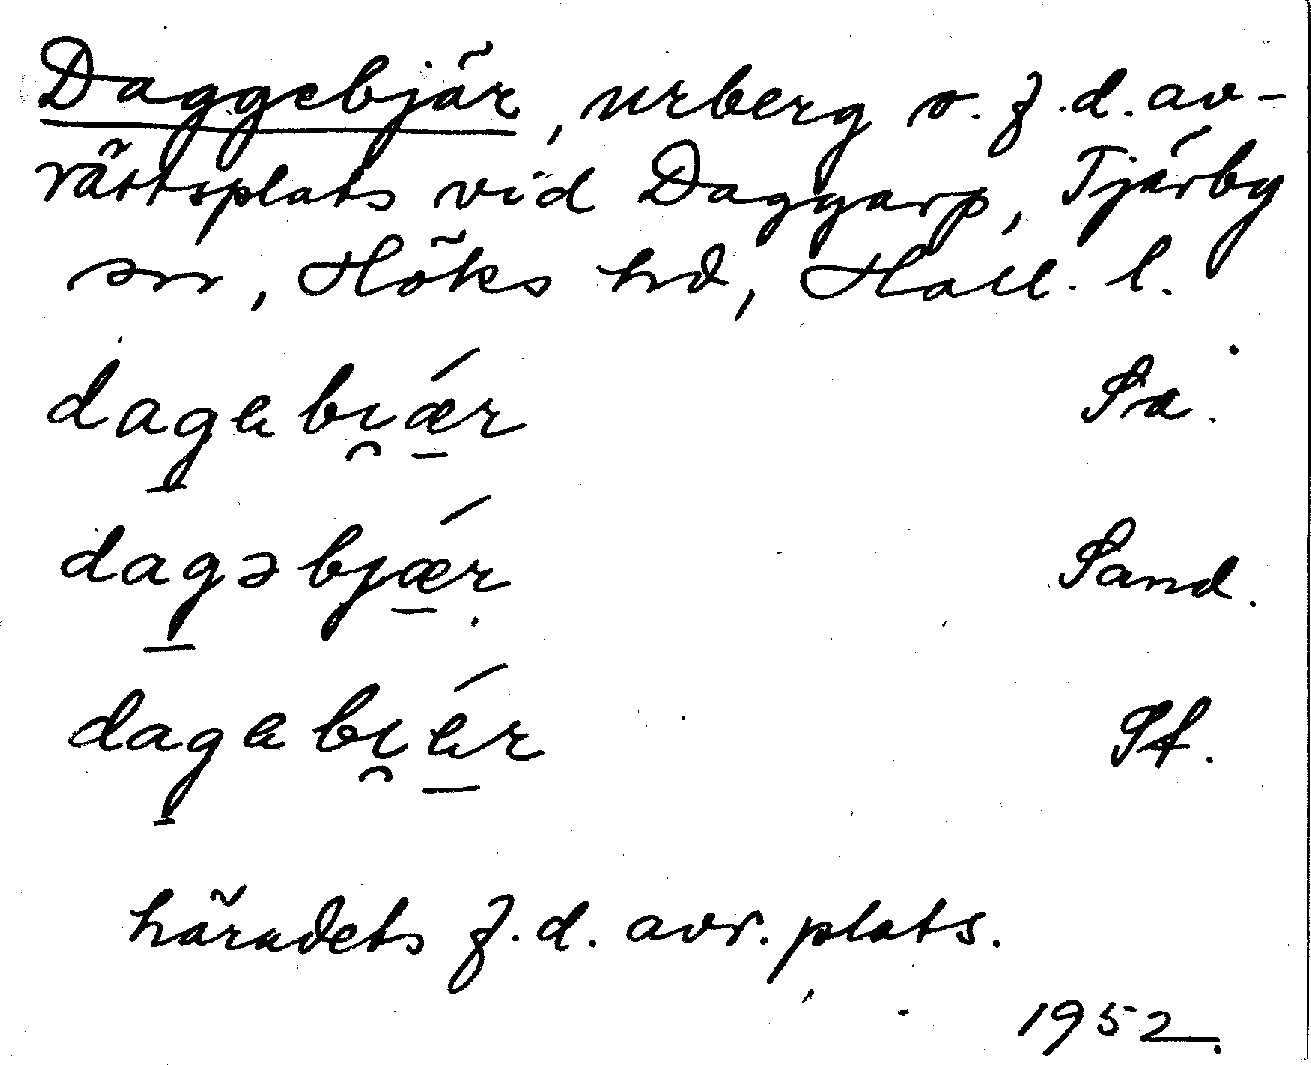 Daggebjär, urberg o. f.d. av-
rättsplats vid Daggarp, Tjärby
sn, Höks hd, Hall. l.
dagabi̯ǽr Sa.
dagəbjǽr Sand.
dagabi̯ér St.
häradets f.d. avr. plats.
1952.